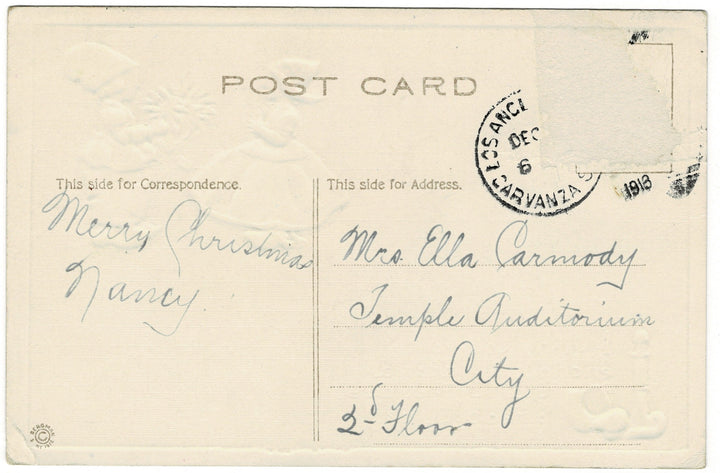 POST CARD
LOS ANGE
DEC
6
GARVANZA S
1913
This side for Correspondence.
This side for Address.
Merry Christmas
Nancy.
Mrs. Ella Carmody
Temple Auditorium
City
2d Floor
©